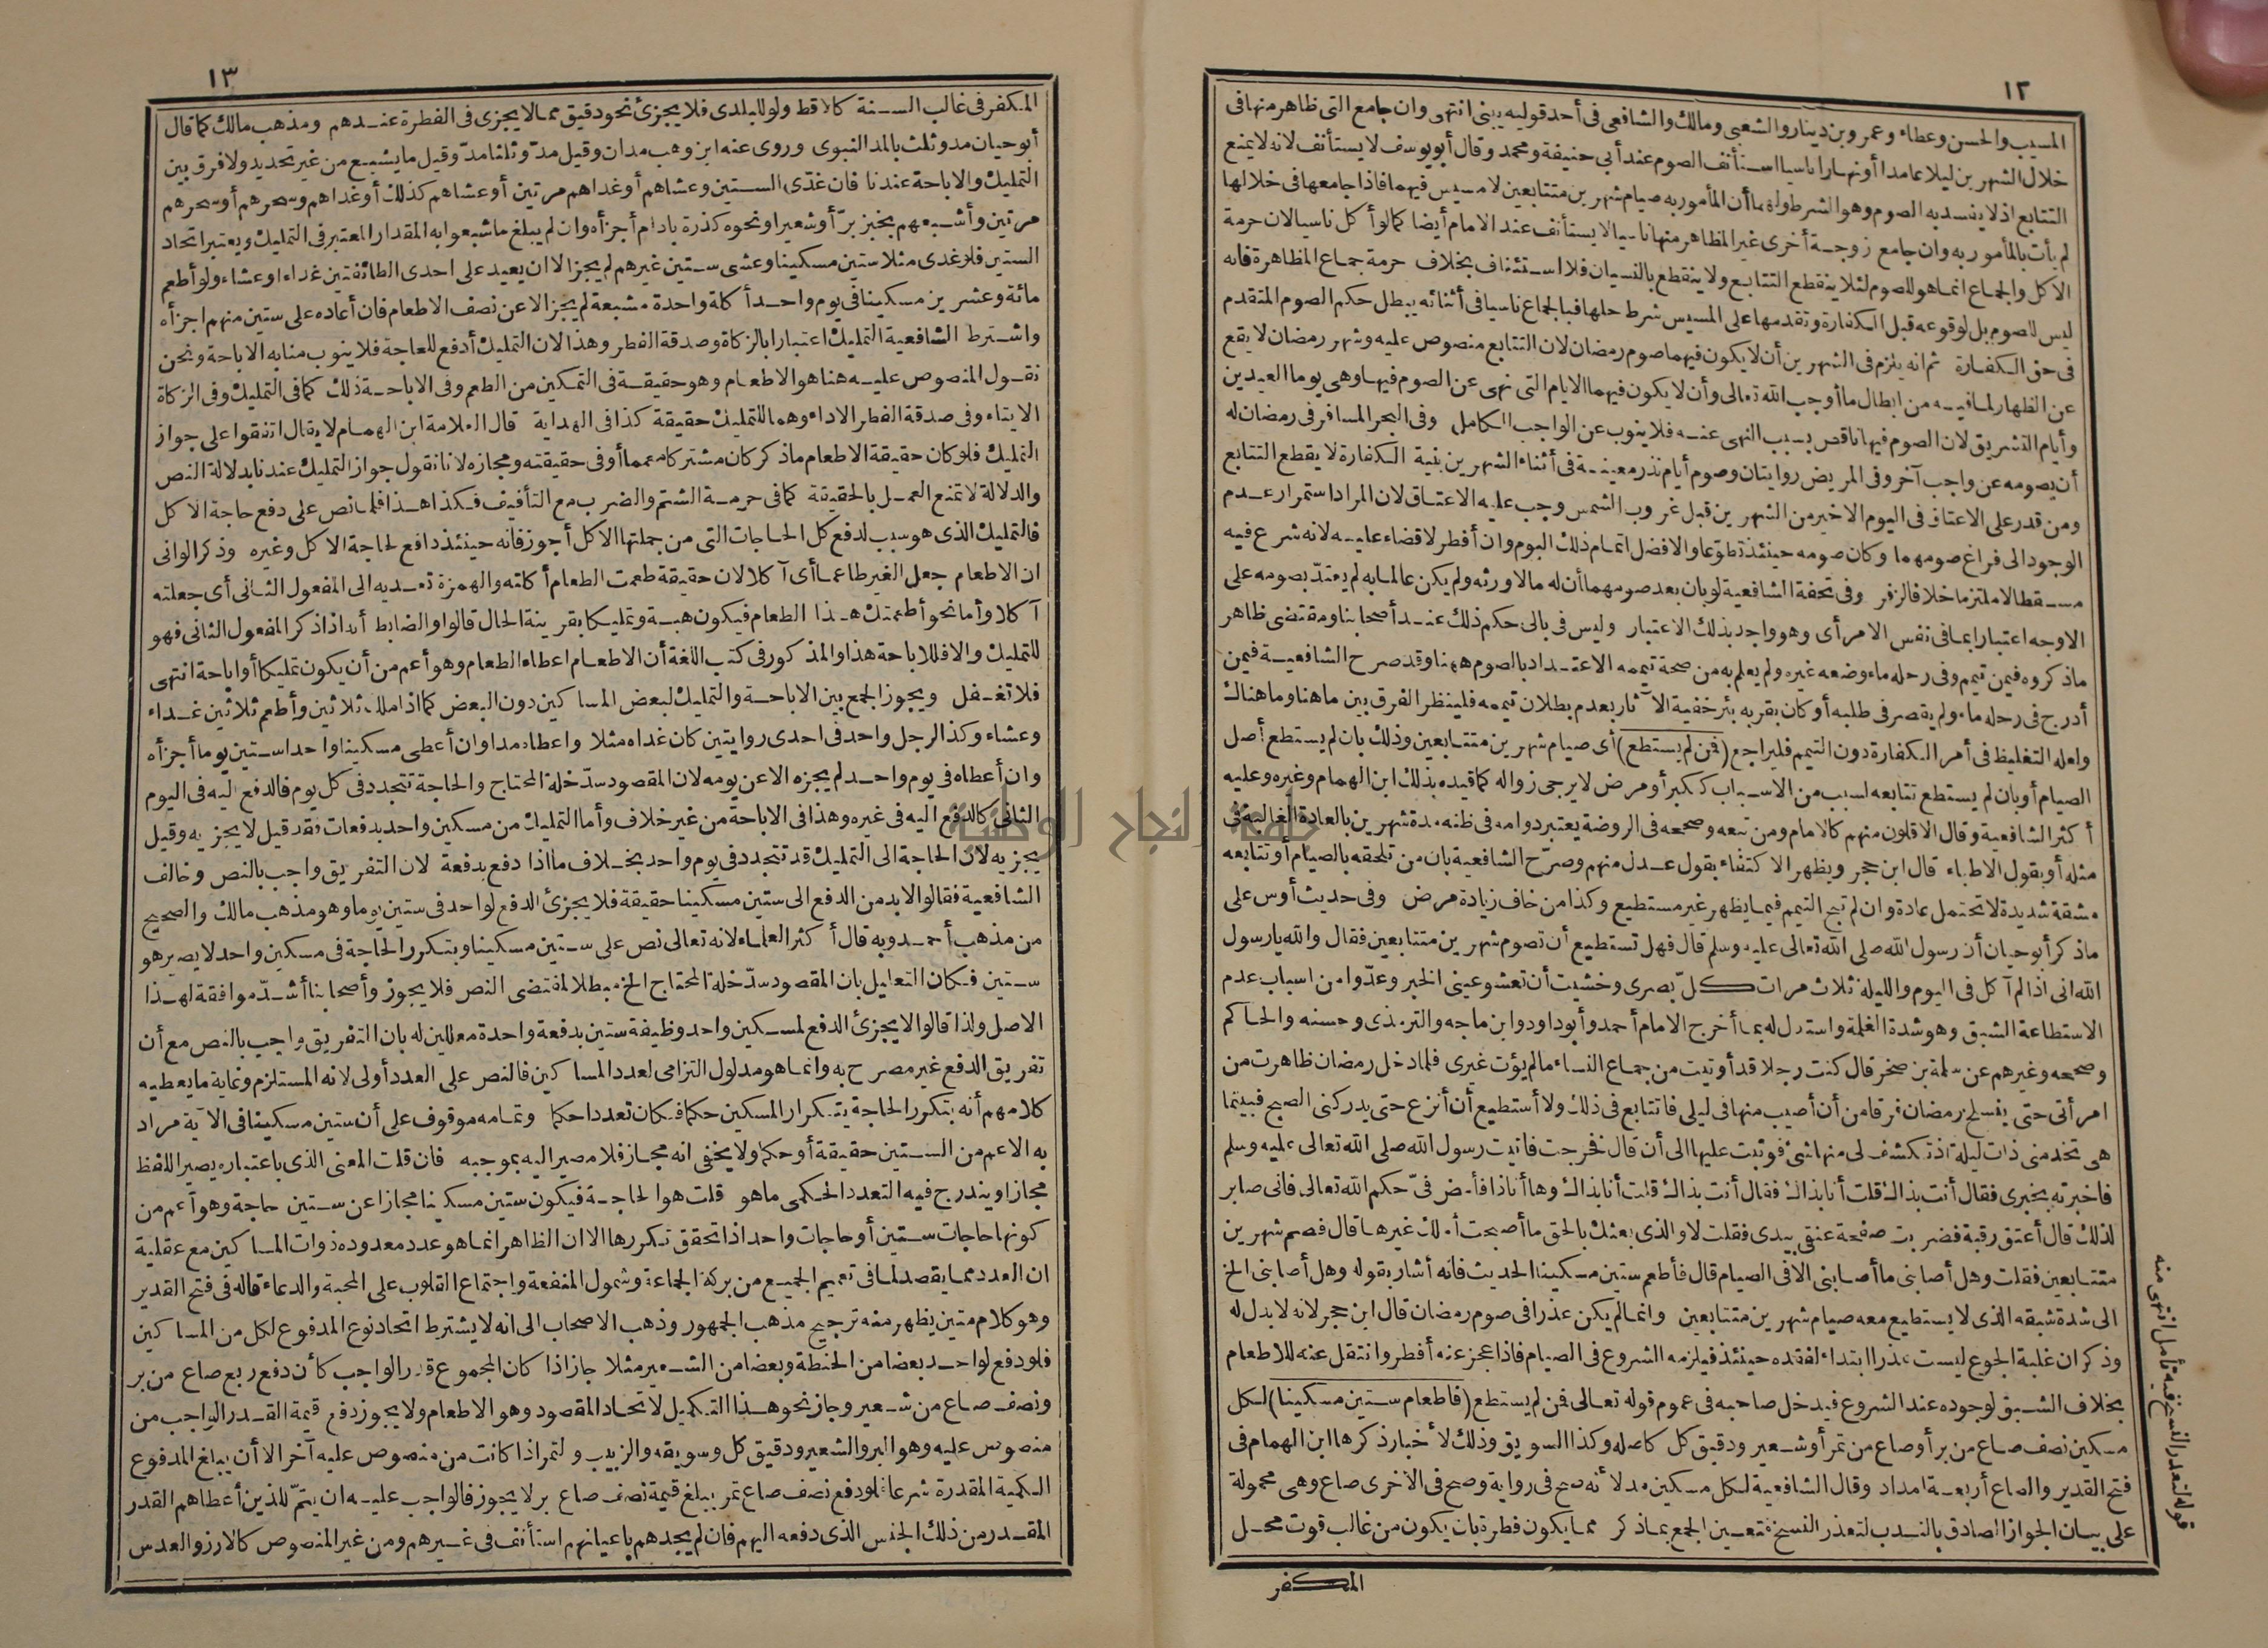 ١٢
المسيب والحسن وعطاء وعمرو بن دينار والشعبي ومالك والشافعي في أحد قوليه يبني انتهى وان جامع التي ظاهر منها في
خلال الشهرين ليلا عامدا أونهارا ناسيا استأنف الصوم عند أبي حنيفة ومحمد وقال أبو يوسف لا يستأنف لانه لا يمنع
التتابع اذ لا يفسد به الصوم وهو الشرط ولهما أن المأمور به صيام شهرين متتابعين لا مسيس فيهما فاذا جامعها في خلالها
لم يأت بالمأمور به وان جامع زوجة أخرى غير المظاهر منها ناسيا لا يستأنف عند الامام أيضا كما لو أكل ناسيا لان حرمة
الاكل والجماع انما هو للصوم لئلا ينقطع التتابع ولا ينقطع بالنسيان فلا استئناف بخلاف حرمة جماع المظاهرة فانه
ليس للصوم بل لوقوعه قبل الكفارة وتقدمها على المسيس شرط حلها فبالجماع ناسيا في أثنائه يبطل حكم الصوم المتقدم
في حق الكفارة ثم انه يلزم في الشهرين أن لا يكون فيهما صوم رمضان لان التتابع منصوص عليه وشهر رمضان لا يقع
عن الظهار لما فيه من ابطال ما أوجب الله تعالى وأن لا يكون فيهما الايام التي نهى عن الصوم فيها وهي يوما العيدين
وأيام التشريق لان الصوم فيها ناقص بسبب النهى عنه فلا ينوب عن الواجب الكامل وفي البحر المسافر في رمضان له
أن يصومه عن واجب آخر وفي المريض روايتان وصوم أيام نذر معينة في أثناء الشهرين بنية الكفارة لا يقطع التتابع
ومن قدر على الاعتاق في اليوم الاخير من الشهرين قبل غروب الشمس وجب عليه الاعتاق لان المراد استمرار عدم
الوجود الى فراغ صومهما وكان صومه حينئذ تطوّعا والافضل اتمام ذلك اليوم وان أفطر لا قضاء عليه لانه شرع فيه
مسقطا لا ملتزما خلافا لزفر وفي تحفة الشافعية لو بان بعد صومهما أن له مالا ورثه ولم يكن عالما به لم يعتدّ بصومه على
الاوجه اعتبارا بما في نفس الامر أى وهو واجد بذلك الاعتبار وليس في بالى حكم ذلك عند أصحابنا ومقتضى ظاهر
ماذكروه فيمن تيمم وفي رحله ماء وضعه غيره ولم يعلم به من صحة تيممه الاعتداد بالصوم ههنا وقد صرح الشافعية فيمن
أدرج في رحله ماء ولم يقصر في طلبه أو كان بقربه بئر خفية الآثار بعدم بطلان تيممه فلينظر الفرق بين ما هنا وما هناك
ولعله التغليظ في أمر الكفارة دون التيمم فليراجع (فمن لم يستطع) أى صيام شهرين متتابعين وذلك بان لم يستطع أصل
الصيام أو بان لم يستطع تتابعه لسبب من الاسباب ككبر أو مرض لا يرجى زواله كما قيده بذلك ابن الهمام وغيره وعليه
أكثر الشافعية وقال الاقلون منهم كالامام ومن تبعه وصححه في الروضة يعتبر دوامه في ظنه مدة شهرين بالعادة الغالبة في
مثله أو بقول الاطباء قال ابن حجر ويظهر الاكتفاء بقول عدل منهم وصرّح الشافعية بان من تلحقه بالصيام أو تتابعه
مشقة شديدة لا تحتمل عادة وان لم تبح التيمم فيما يظهر غير مستطيع وكذا من خاف زيادة مرض وفي حديث أوس على
ماذكر أبو حيان أن رسول الله صلى الله تعالى عليه وسلم قال فهل تستطيع أن تصوم شهرين متتابعين فقال والله يارسول
الله اني اذا لم آكل في اليوم والليلة ثلاث مرات كلّ بصرى وخشيت أن تعشو عيني الخبر وعدّوا من اسباب عدم
الاستطاعة الشبق وهو شدة الغلمة واستدل له بما أخرج الامام أحمد وأبو داود وابن ماجه والترمذى وحسنه والحاكم
وصححه وغيرهم عن سلمة بن صخر قال كنت رجلا قد أوتيت من جماع النساء ما لم يؤت غيرى فلما دخل رمضان ظاهرت من
امرأتي حتى ينسلخ رمضان فرقا من أن أصيب منها في ليلى فاتتابع في ذلك ولا أستطيع أن أنزع حتى يدركني الصبح فبينما
هي تخدمني ذات ليلة اذ تكشف لى منها شئ فوثبت عليها الى أن قال فخرجت فاتيت رسول الله صلى الله تعالى عليه وسلم
فاخبرته بخبرى فقال أنت بذاك قلت أنا بذاك فقال أنت بذاك قلت أنا بذاك وها أنا ذا فأمض فيّ حكم الله تعالى فاني صابر
لذلك قال أعتق رقبة فضربت صفحة عنقي بيدى فقلت لا والذى بعثك بالحق ما أصبحت أملك غيرها قال فصم شهرين
متتابعين فقلت وهل أصابني ما أصابني الا في الصيام قال فأطعم ستين مسكينا الحديث فانه أشار بقوله وهل أصابني الخ
الى شدة شبقه الذى لا يستطيع معه صيام شهرين متتابعين وانما لم يكن عذرا في صوم رمضان قال ابن حجر لانه لا بدل له
وذكر ان غلبة الجوع ليست عذرا ابتداء لفقده حينئذ فيلزمه الشروع في الصيام فاذا عجز عنه أفطر وانتقل عنه للاطعام
بخلاف الشبق لوجوده عند الشروع فيدخل صاحبه في عموم قوله تعالى فمن لم يستطع (فاطعام ستين مسكينا) لكل
مسكين نصف صاع من بر أو صاع من تمر أو شعير ودقيق كل كاصله وكذا السويق وذلك لأخبار ذكرها ابن الهمام في
فتح القدير والصاع أربعة امداد وقال الشافعية لكل مسكين مد لأنه صح في رواية وصح في الاخرى صاع وهي محمولة
على بيان الجواز الصادق بالندب لتعذر النسخ فتعين الجمع بما ذكر مما يكون فطرة بان يكون من غالب قوت محل
المكفر
قوله لتعذر النسخ فيه تأمل انتهى منه
١٣
المكفر في غالب السنة كالاقط ولو للبلدى فلا يجزئ نحو دقيق مما لا يجزى في الفطرة عندهم ومذهب مالك كما قال
أبو حيان مد وثلث بالمد النبوى وروى عنه ابن وهب مدان وقيل مدّ وثلثا مدّ وقيل ما يشبع من غير تحديد ولا فرق بين
التمليك والاباحة عندنا فان غدّى الستين وعشاهم أو غداهم مرتين أو عشاهم كذلك أو غداهم وسحرهم أو سحرهم
مرتين وأشبعهم بخبز برّ أو شعير او نحوه كذرة بادام أجزأه وان لم يبلغ ما شبعوا به المقدار المعتبر في التمليك ويعتبر اتحاد
الستين فلو غدى مثلا ستين مسكينا وعشى ستين غيرهم لم يجز الا ان يعيد على احدى الطائفتين غداء او عشاء ولو أطعم
مائة وعشرين مسكينا في يوم واحد أكلة واحدة مشبعة لم يجز الا عن نصف الاطعام فان أعاده على ستين منهم اجزأه
واشترط الشافعية التمليك اعتبارا بالزكاة وصدقة الفطر وهذا لان التمليك أدفع للحاجة فلا ينوب منابه الاباحة ونحن
نقول المنصوص عليه هنا هو الاطعام وهو حقيقة في التمكين من الطعم وفي الاباحة ذلك كما في التمليك وفي الزكاة
الايتاء وفي صدقة الفطر الاداء وهما للتمليك حقيقة كذا في الهداية قال العلامة ابن الهمام لا يقال اتفقوا على جواز
التمليك فلو كان حقيقة الاطعام ماذكر كان مشتركا معمما أو في حقيقته ومجازه لانا نقول جواز التمليك عندنا بدلالة النص
والدلالة لا تمنع العمل بالحقيقة كما في حرمة الشتم والضرب مع التأفيف فكذا هذا فلما نص على دفع حاجة الاكل
فالتمليك الذى هو سبب لدفع كل الحاجات التي من جملتها الاكل أجوز فانه حينئذ دافع لحاجة الاكل وغيره وذكر الواني
ان الاطعام جعل الغير طاعما أى آكلا لان حقيقة طعمت الطعام أكلته والهمزة تعديه الى المفعول الثاني أى جعلته
آكلا وأما نحو أطعمتك هذا الطعام فيكون هبة وتمليكا بقرينة الحال قالوا والضابط أنه اذا ذكر المفعول الثاني فهو
للتمليك والا فللاباحة هذا والمذكور في كتب اللغة أن الاطعام اعطاء الطعام وهو أعم من أن يكون تمليكا أو اباحة انتهى
فلا تغفل ويجوز الجمع بين الاباحة والتمليك لبعض المساكين دون البعض كما اذا ملك ثلاثين وأطعم ثلاثين غداء
وعشاء وكذا لرجل واحد في احدى روايتين كان غداه مثلا واعطاه مدا وان أعطى مسكينا واحدا ستين يوما أجزأه
وان أعطاه في يوم واحد لم يجزه الا عن يومه لان المقصود سدّ خلة المحتاج والحاجة تتجدد في كل يوم فالدفع اليه في اليوم
الثاني كالدفع اليه في غيره وهذا في الاباحة من غير خلاف وأما التمليك من مسكين واحد بدفعات فقد قيل لا يجزيه وقيل
يجزيه لان الحاجة الى التمليك قد تتجدد في يوم واحد بخلاف ما اذا دفع بدفعة لان التفريق واجب بالنص وخالف
الشافعية فقالوا لا بد من الدفع الى ستين مسكينا حقيقة فلا يجزئ الدفع لواحد في ستين يوما وهو مذهب مالك والصحيح
من مذهب أحمد وبه قال أكثر العلماء لانه تعالى نص على ستين مسكينا وبتكرر الحاجة في مسكين واحد لا يصير هو
ستين فكان التعليل بان المقصود سدّ خلة المحتاج الخ مبطلا لمقتضى النص فلا يجوز وأصحابنا أشدّ موافقة لهذا
الاصل ولذا قالوا لا يجزئ الدفع لمسكين واحد وظيفة ستين بدفعة واحدة معللين له بان التفريق واجب بالنص مع أن
تفريق الدفع غير مصرح به وانما هو مدلول التزامي لعدد المساكين فالنص على العدد أولى لانه المستلزم وغاية ما يعطيه
كلامهم أنه بتكرر الحاجة يتكرر المسكين حكما فكان تعددا حكما وتمامه موقوف على أن ستين مسكينا في الآية مراد
به الاعم من الستين حقيقة أو حكما ولا يخفى انه مجاز فلا مصير اليه بموجبه فان قلت المعنى الذى باعتباره يصير اللفظ
مجازا ويندرج فيه التعدد الحكمي ماهو قلت هو الحاجة فيكون ستين مسكينا مجازا عن ستين حاجة وهو أعم من
كونها حاجات ستين أو حاجات واحد اذا تحقق تكررها الا ان الظاهر انما هو عدد معدوده ذوات المساكين مع عقلية
ان العدد مما يقصد لما في تعميم الجميع من بركة الجماعة وشمول المنفعة واجتماع القلوب على المحبة والدعاء قاله في فتح القدير
وهو كلام متين يظهر منه ترجيح مذهب الجمهور وذهب الاصحاب الى انه لا يشترط اتحاد نوع المدفوع لكل من المساكين
فلو دفع لواحد بعضا من الحنطة وبعضا من الشعير مثلا جاز اذا كان المجموع قدر الواجب كأن دفع ربع صاع من بر
ونصف صاع من شعير وجاز نحو هذا التكميل لاتحاد المقصود وهو الاطعام ولا يجوز دفع قيمة القدر الواجب من
منصوص عليه وهو البر والشعير ودقيق كل وسويقه والزبيب والتمر اذا كانت من منصوص عليه آخر الا أن يبلغ المدفوع
الكمية المقدرة شرعا فلو دفع نصف صاع تمر يبلغ قيمة نصف صاع بر لا يجوز فالواجب عليه ان يتمّ للذين أعطاهم القدر
المقدر من ذلك الجنس الذى دفعه اليهم فان لم يجدهم باعيانهم استأنف في غيرهم ومن غير المنصوص كالارز والعدس